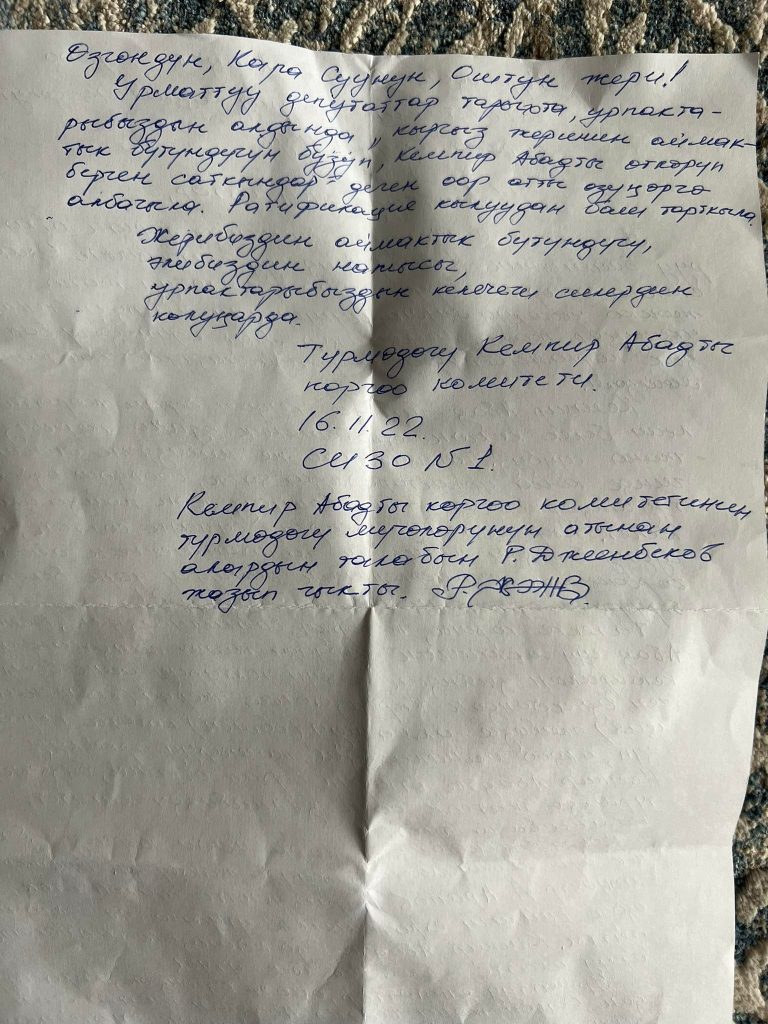 Өзгөндүн, Кара Суунун, Оштун жери!
Урматтуу депутаттар тарыхта, урпакта-
рыбыздын алдында „кыргыз жеринин аймак-
тык бүтүндүгүн бузуп, Кемпир Абадты өткөрүп
берген саткындар" деген оор атты өзүңөргө
албагыла. Ратификация кылуудан баш тарткыла.
Жерибиздин аймактык бүтүндүгү,
элибиздин намысы,
урпактарыбыздын келечеги силердин
колуңарда.
Түрмөдөгү Кемпир Абадты
коргоо комитети.
16.11.22.
СИЗО №1.
Кемпир Абадты коргоо комитетинин
түрмөдөгү мүчөлөрүнүн атынан
алардын талабын Р. Джеенбеков
жазып чыкты.